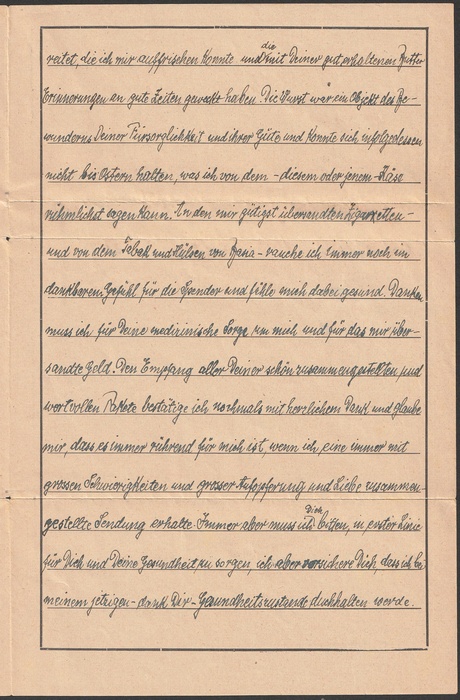 reitet, die ich mir auffrischen konnte und die mit Deiner gut erhaltenen Butter
Erinnerungen an gute Zeiten geweckt haben. Die Wurst war ein Objekt des Be-
wunderns Deiner Fürsorglichkeit und ihrer Güte und konnte sich infolgedessen
nicht bis Ostern halten, was ich von dem - diesem oder jenem - Käse
rühmlichst sagen kann. An den mir gütigst übersandten Zigaretten -
und von dem Tabak und Hülsen von - rauche ich immer noch im
dankbaren Gefühl für die Spender und fühle mich dabei gesund. Danken
muss ich für Deine medizinische Sorge um mich und für das mir über-
sandte Geld. Den Empfang aller Deiner schön zusammengestellten und
wertvollen Pakete bestätige ich nochmals mit herzlichem Dank und glaube
mir, dass es immer rührend für mich ist, wenn ich eine immer mit
grossen Schwierigkeiten und grosser Aufopferung und Liebe zusammen-
gestellte Sendung erhalte. Immer aber muss ich Dich bitten, in erster Linie
für Dich und Deine Gesundheit zu sorgen, ich aber versichere Dich, dass ich bei
meinem jetzigen - dank Dir - Gesundheitszustande durchhalten werde.